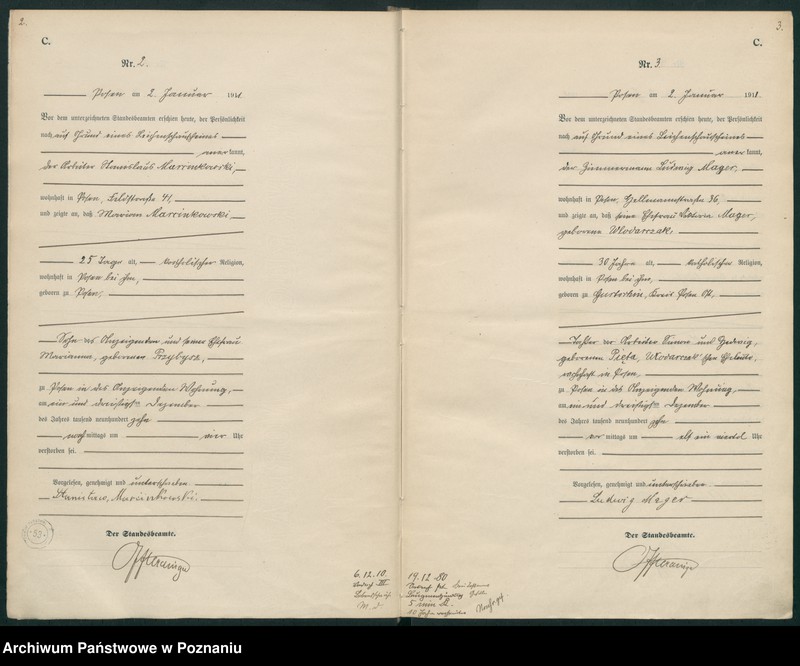 2.
C.
Nr. 2.
Posen am 2. Januar 1911.
Vor dem unterzeichneten Standesbeamten erschien heute, der Persönlichkeit
nach auf Grund eines Leichenschauscheines
anerkannt,
der Arbeiter Stanislaus Marcinkowski,
wohnhaft in Posen, Feldstraße 41,
und zeigte an, daß Marian Marcinkowski,
25 Tage alt, katholischer Religion,
wohnhaft in Posen bei ihm,
geboren zu Posen,
Sohn des Anzeigenden und seiner Ehefrau
Marianna, geborenen Przybysz,
zu Posen in des Anzeigenden Wohnung,
am ein und dreißigsten Dezember
des Jahres tausend neunhundert zehn
nachmittags um vier Uhr
verstorben sei.
Vorgelesen, genehmigt und unterschrieben
Stanisław Marcinkowski.
Der Standesbeamte.
6.12.10.
3.
C.
Nr. 3.
Posen am 2. Januar 1911.
Vor dem unterzeichneten Standesbeamten erschien heute, der Persönlichkeit
nach auf Grund eines Leichenschauscheines
anerkannt,
der Zimmermann Ludwig Mager,
wohnhaft in Posen, 36,
und zeigte an, daß seine Ehefrau Mager,
geborene Wlodarczak,
30 Jahre alt, katholischer Religion,
wohnhaft in Posen bei ihm,
geboren zu Kreis Posen Ost,
Tochter der Arbeiter und Hedwig,
geborenen Pięta, Wlodarczak'schen Eheleute,
wohnhaft in Posen,
zu Posen in des Anzeigenden Wohnung,
am ein und dreißigsten Dezember
des Jahres tausend neunhundert zehn
vormittags um elf ein viertel Uhr
verstorben sei.
Vorgelesen, genehmigt und unterschrieben
Ludwig Mager
Der Standesbeamte.
19.12.80
Archiwum Państwowe w Poznaniu